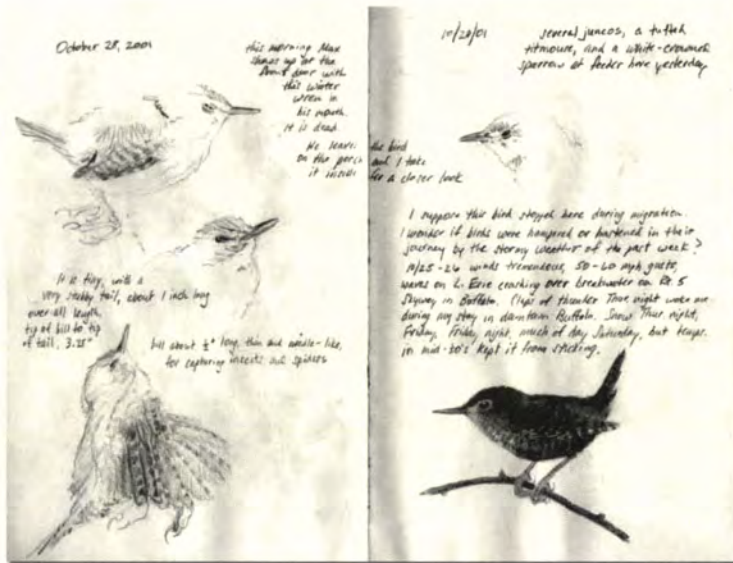 October 28, 2001
this morning Max
shows up at the
front door with
this winter
wren in
his mouth.
it is dead.
He leaves the bird
on the porch and I take
it inside for a closer look
It is tiny, with a
very stubby tail, about 1 inch long
over-all length,
tip of bill to tip
of tail, 3.25"
bill about ½" long, thin and needle-like,
for capturing insects and spiders
10/28/01
several juncos, a tufted
titmouse, and a white-crowned
sparrow at feeder here yesterday
I suppose this bird stopped here during migration.
I wonder if birds were hampered or hastened in their
journey by the stormy weather of the past week?
10/25-26 winds tremendous, 50-60 mph gusts,
waves on L. Erie crashing over breakwater on Rt. 5
Skyway in Buffalo. Claps of thunder Thur. night woke me
during my stay in downtown Buffalo. Snow Thur. night,
Friday, Friday night, much of day Saturday, but temps.
in mid-30's kept it from sticking.